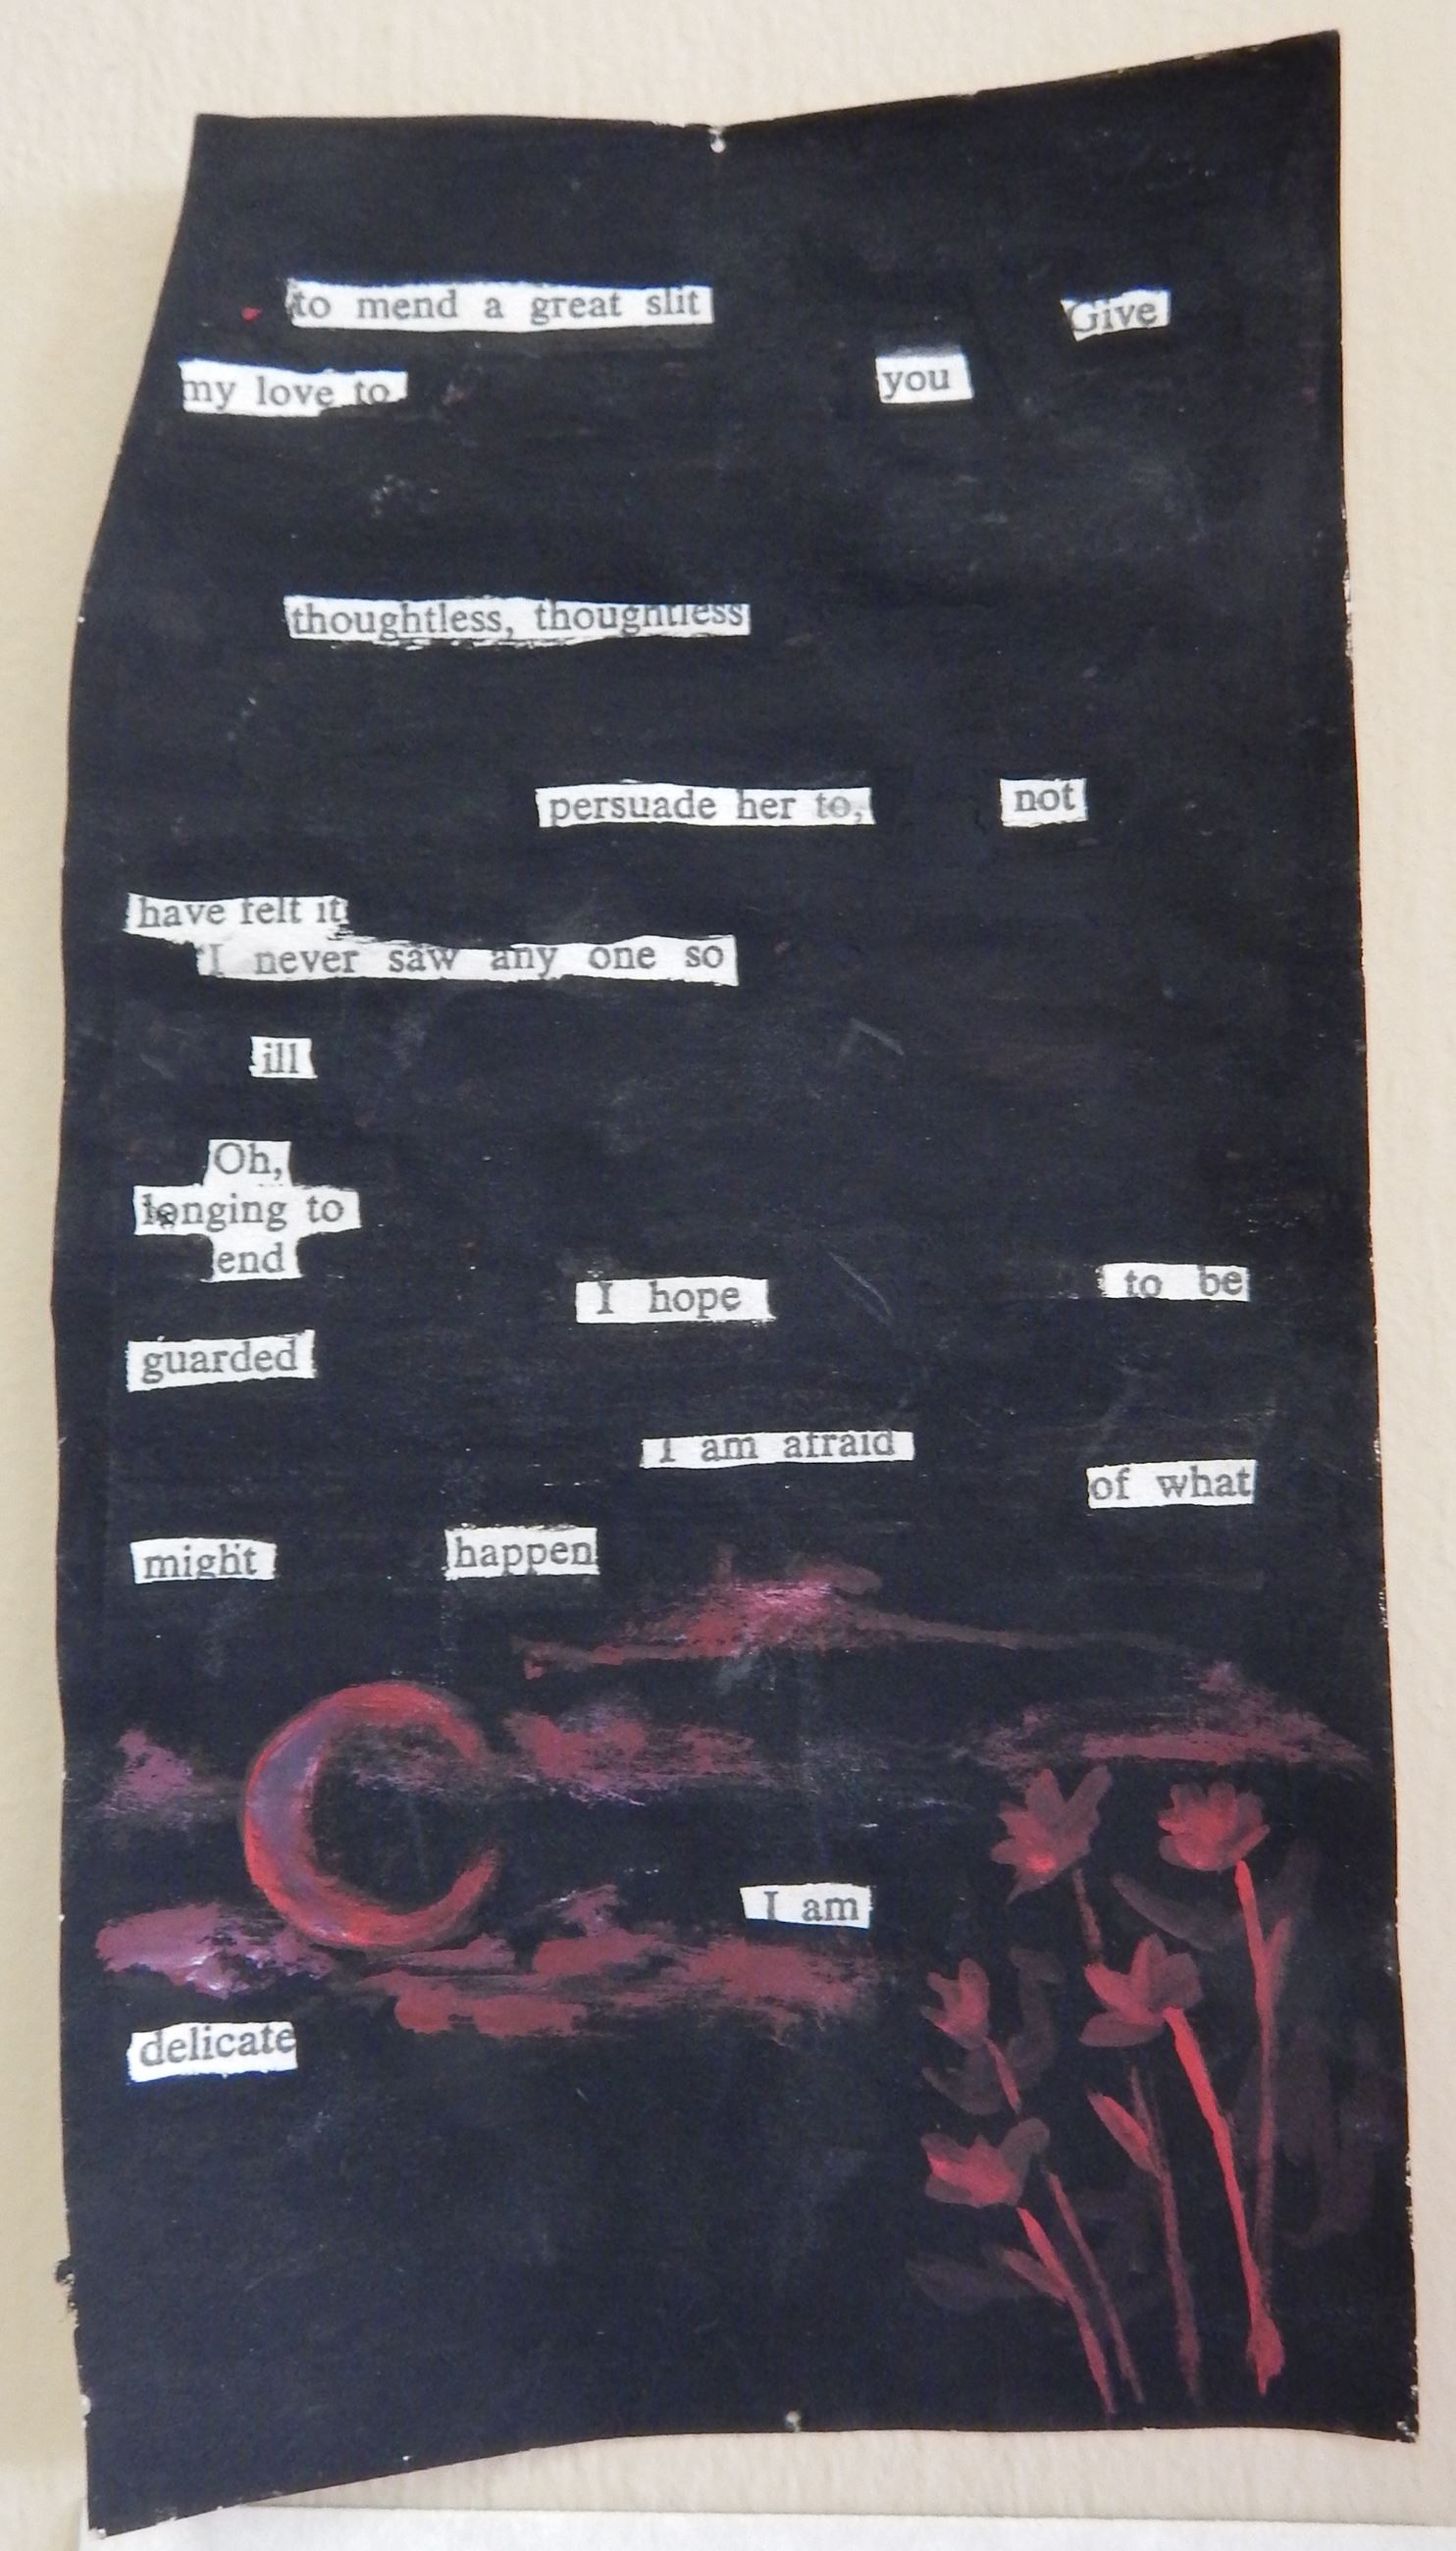 to mend a great slit Give
my love to you
thoughtless, thoughtless
persuade her to, not
have felt it
"I never saw any one so
ill
Oh,
longing to
end
I hope to be
guarded
I am afraid
of what
might happen
I am
delicate